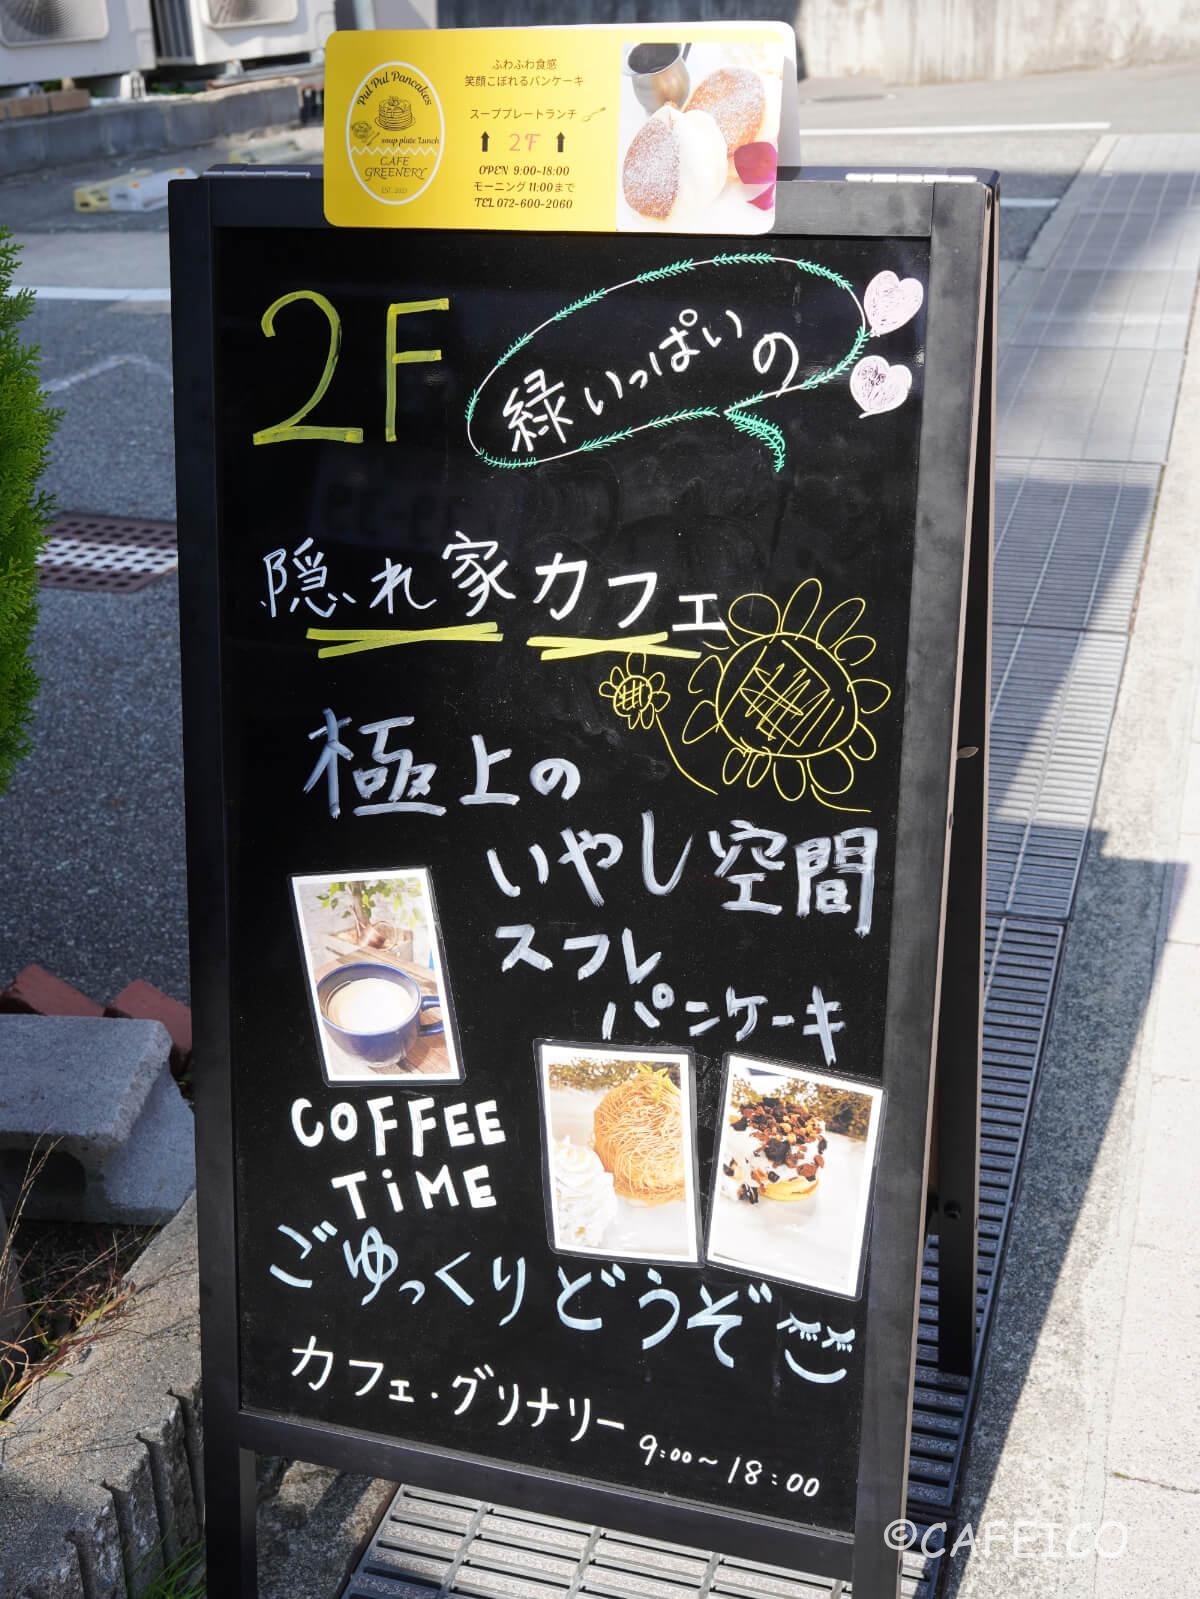 Pul Pul Pancakes
soup plate Lunch
CAFE
GREENERY
EST. 2023
ふわふわ食感
笑顔こぼれるパンケーキ
スーププレートランチ
2F
OPEN 9:00-18:00
モーニング11:00まで
TEL 072-600-2060
2F
緑いっぱいの
隠れ家カフェ
極上の
いやし空間
スフレ
パンケーキ
COFFEE
TiME
ごゆっくりどうぞ
カフェ・グリナリー
9:00~18:00
©CAFEICO